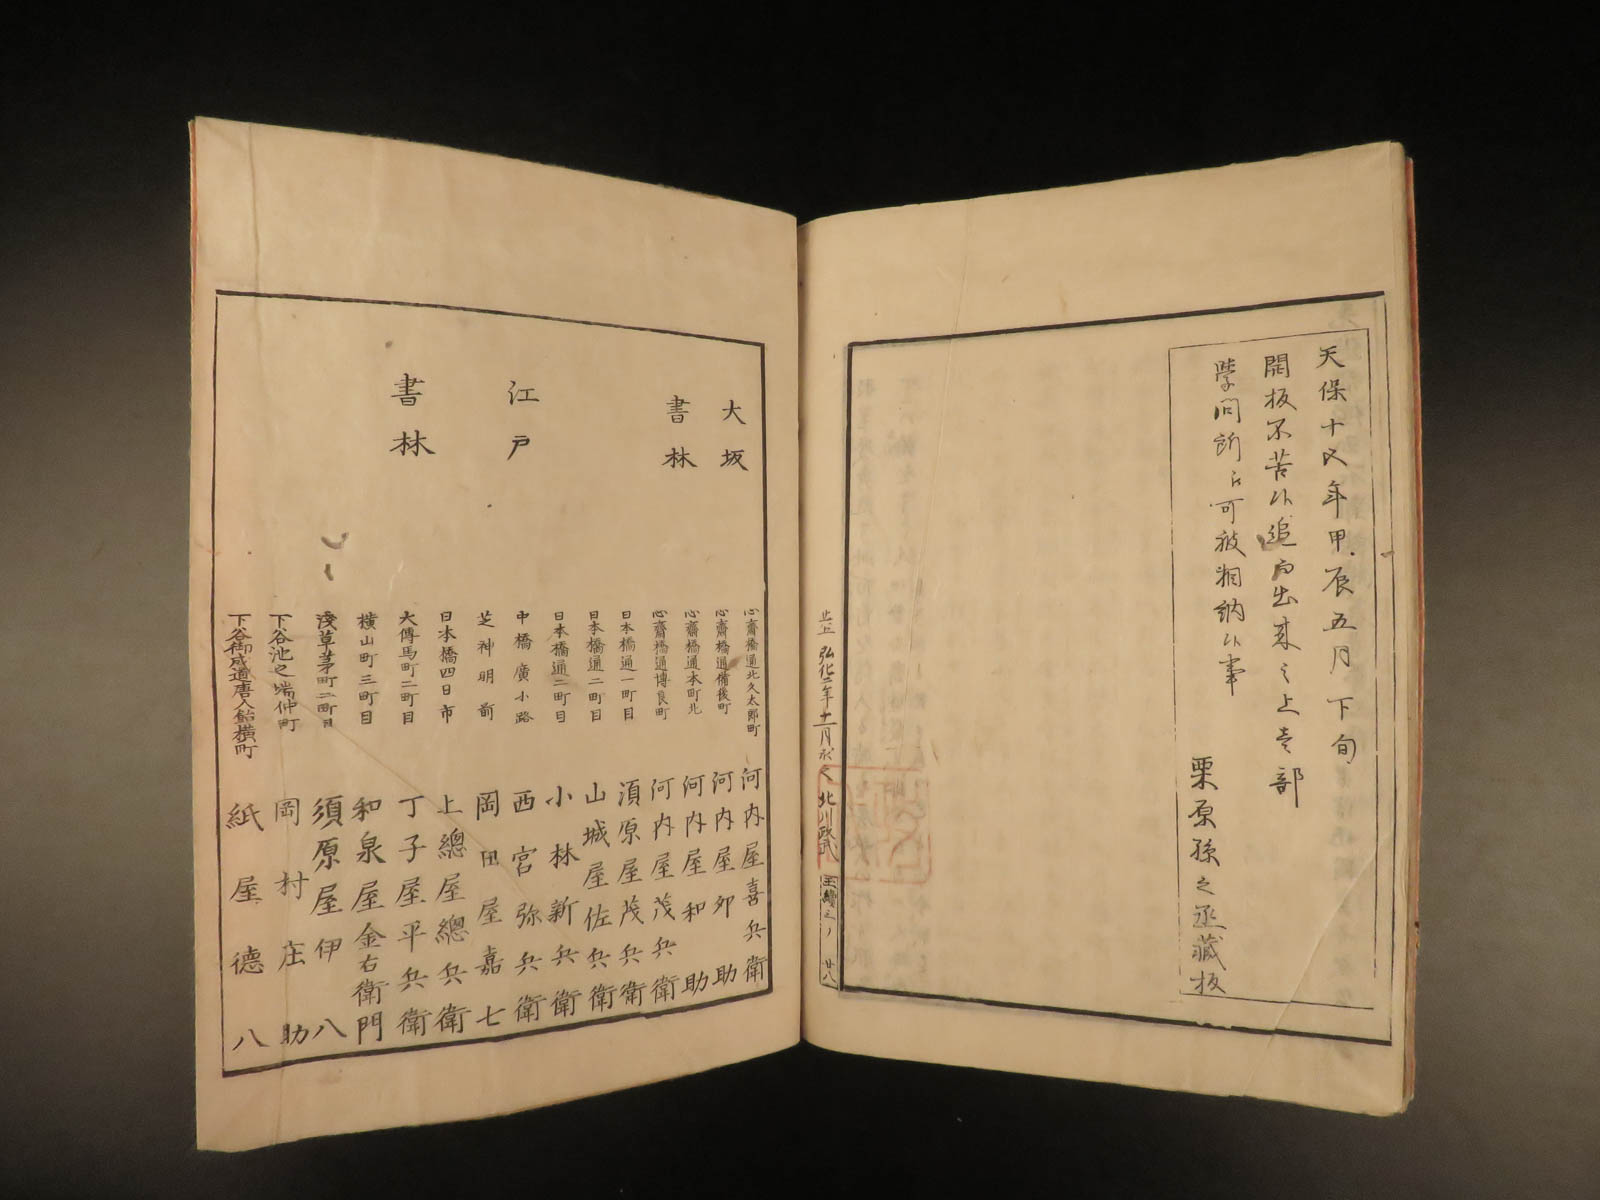 天保十五年甲辰五月下旬
開板不苦候追而出来之上壱部
學問所江可被相納候事
栗原孫之丞藏板
弘化二年十一月求之 北川政武
玉續之八 廿八
大坂
書林
心齋橋通北久太郎町 河内屋喜兵衛
心齋橋通備後町 河内屋卯助
心齋橋通本町北 河内屋和助
心齋橋通博良町 河内屋茂兵衛
日本橋通一町目 須原屋茂兵衛
日本橋通二町目 山城屋佐兵衛
日本橋通二町目 小林新兵衛
中橋廣小路 西宮弥兵衛
芝神明前 岡田屋嘉七
日本橋四日市 上總屋總兵衛
大傳馬町二町目 丁子屋平兵衛
横山町三町目 和泉屋金右衛門
淺草茅町二町目 須原屋伊八
下谷池之端仲町 岡村庄助
下谷御成道唐人飴横町 紙屋德八
江戸
書林